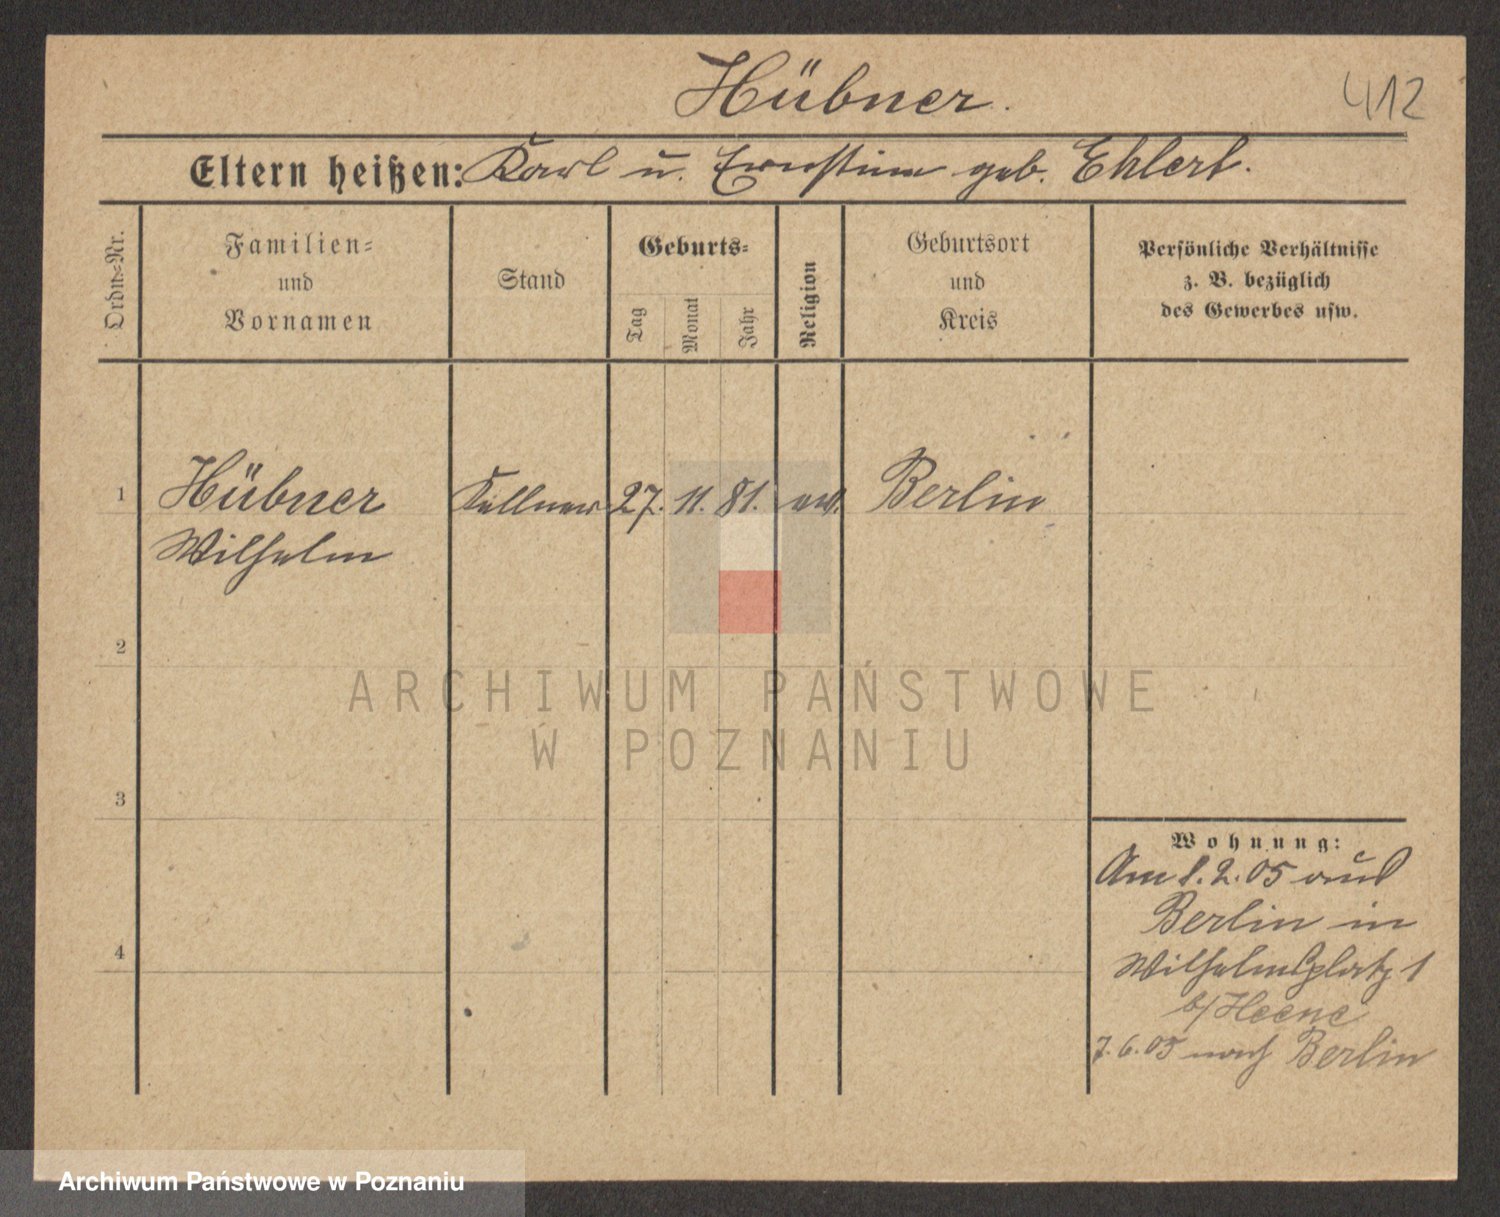 Hübner.
412
Eltern heißen: Karl u. Ernstine geb. Ehlert.
Ordn.=Nr.
Familien=
und
Vornamen
Stand
Geburts=
Tag
Monat
Jahr
Religion
Geburtsort
und
Kreis
Persönliche Verhältnisse
z. B. bezüglich
des Gewerbes usw.
1 Hübner Kellner 27. 11. 81. ev. Berlin
Wilhelm
2
ARCHIWUM PAŃSTWOWE
W POZNANIU
3
Wohnung:
Am 1.2.05 aus
Berlin in
4
Wilhelmsplatz 1
b/Heene
7.6.05 nach Berlin
Archiwum Państwowe w Poznaniu